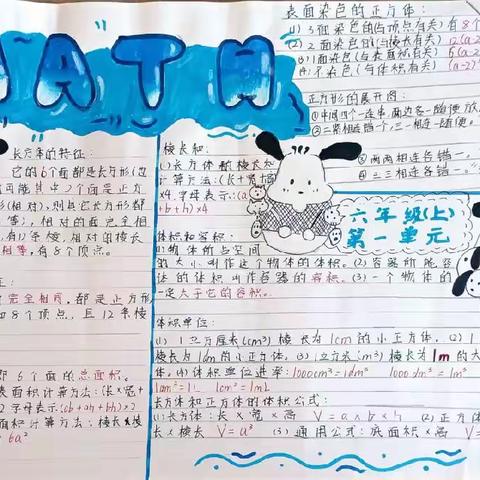 MATH
表面染色的正方体：
(1) 3面染色(与顶点有关)有8个
(2) 2面染色(与棱长有关) 12(a-2
(3) 1面染色(与表面积有关) 6(a-2)
(4) 不染色(与体积有关) (a-2)³
正方形的展开图：
①中间四个一连串，两边各一随便放
②二三紧相连错一，三一相连一随便。
③两两相连各错一。
④三三相连各错一。
六年级(上)
第一单元
长方体的特征：
它的6个面都是长方形(也
可能其中2个面是正方
形(相对)，
等)，相对的面完全相
有12条棱，相对的棱长
相等，有8个顶点。
完全相同，都是正方形
8个顶点，且12条棱
6个面的总面积。
表面积计算方法：(长×宽+
字母表示：(ab+ah+bh)×2
面积计算方法：棱长×棱
6a²
棱长和：
(1)长方体棱长和
计算方法：(长+宽+高
×4.字母表示：(a
+b+h)×4
体积和容积：
(1)物体所占空间
的大小叫作这个物体的体积。(2)容器所能容
的体积叫作容器的容积。(3)一个物体的
一定大于它的容积。
体积单位：
(1) 1立方厘米(cm³)棱长为1cm的小正方体，(2) 1
棱长为1dm的小正方体。(3)1立方米(m³)棱长为1m的大
体。(4)体积单位进率：1000cm³=1dm³ 1000dm³=1m³
1dm³=1L 1cm³=1mL
长方体和正方体的体积公式：
(1)长方体：长×宽×高 V=a×b×h (2)正方体
长×棱长 V=a³ (3)通用公式：底面积×高 V=